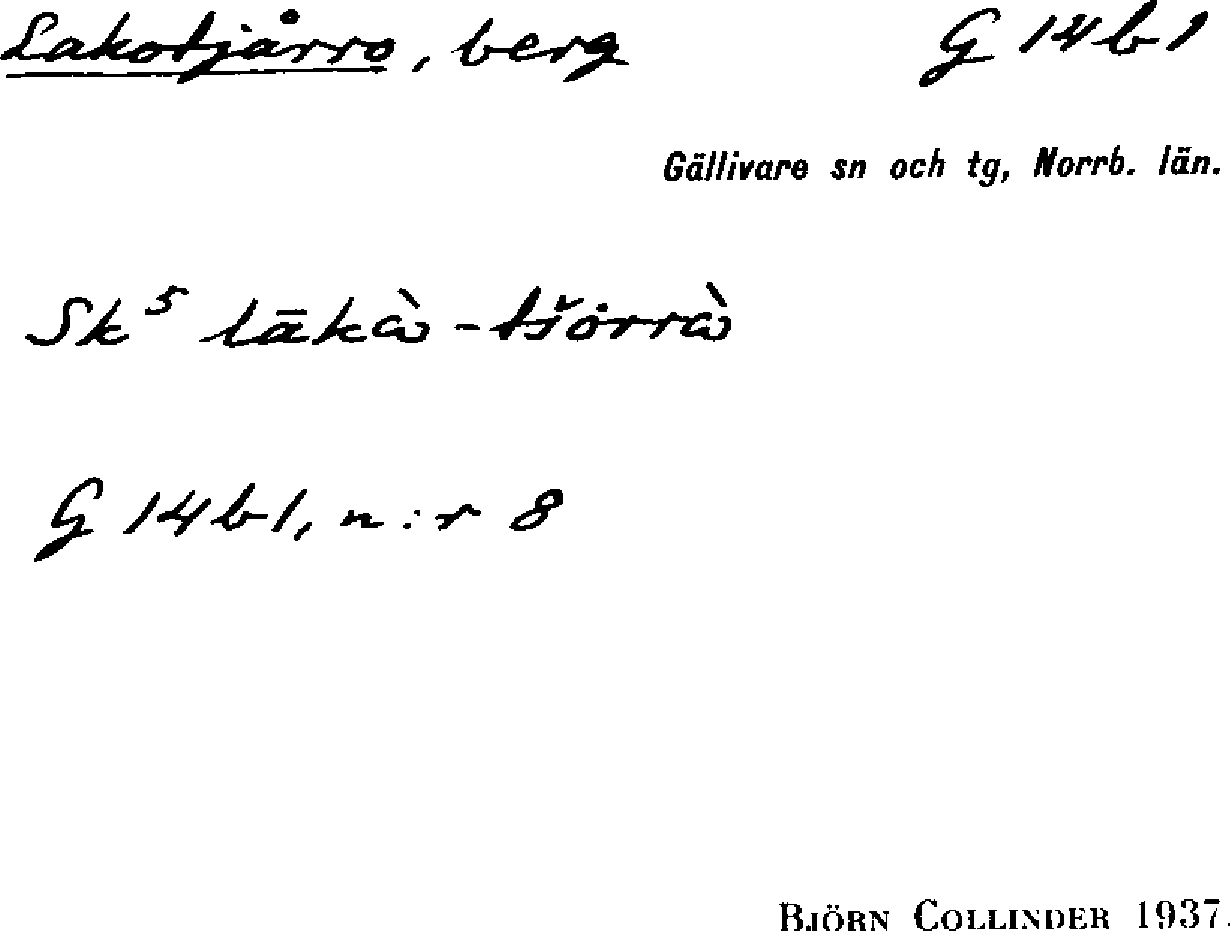 Lakotjårro, berg G 14 b 1
Gällivare sn och tg, Norrb. län.
Sk⁵ lākὼ-tšȯrrὼ
G 14 b 1, n:r 8
BJÖRN COLLINDER 1937.